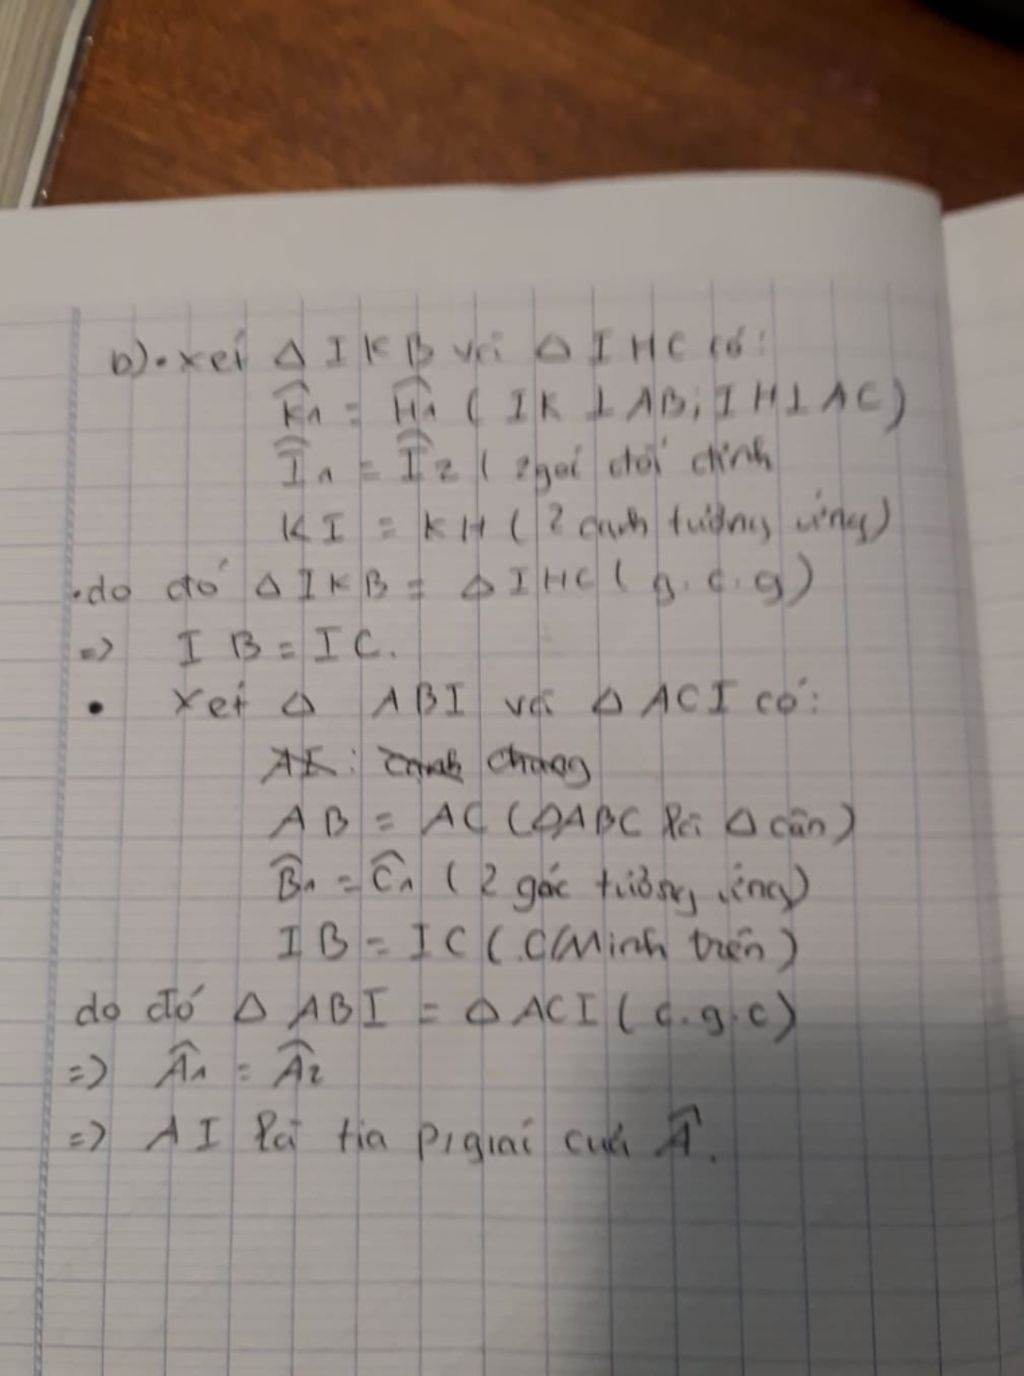 b) • xét Δ IKB và Δ IHC có:
K̂1 = Ĥ1 ( IK ⊥ AB; IH ⊥ AC)
Î1 = Î2 ( 2 goí đối đỉnh
KI = KH ( 2 cạnh tương ứng)
• do đó Δ IKB = Δ IHC ( g.c.g)
=> IB = IC.
• Xét Δ ABI và Δ ACI có:
AI: cạnh chung
AB = AC (ΔABC là Δ cân)
B̂1 = Ĉ1 ( 2 góc tương ứng)
IB = IC (.C/Minh trên)
do đó Δ ABI = Δ ACI ( c.g.c)
=> Â1 = Â2
=> AI là tia p/giaí của Â.